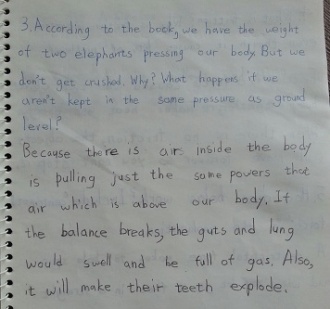 3. According to the book, we have the weight
of two elephants pressing our body. But we
don't get crushed. Why? What happens if we
aren't kept in the same pressure as ground
level?
Because there is air inside the body
is pulling just the same powers that
air which is above our body. If
the balance breaks, the guts and lung
would swell and be full of gas. Also,
it will make their teeth explode.